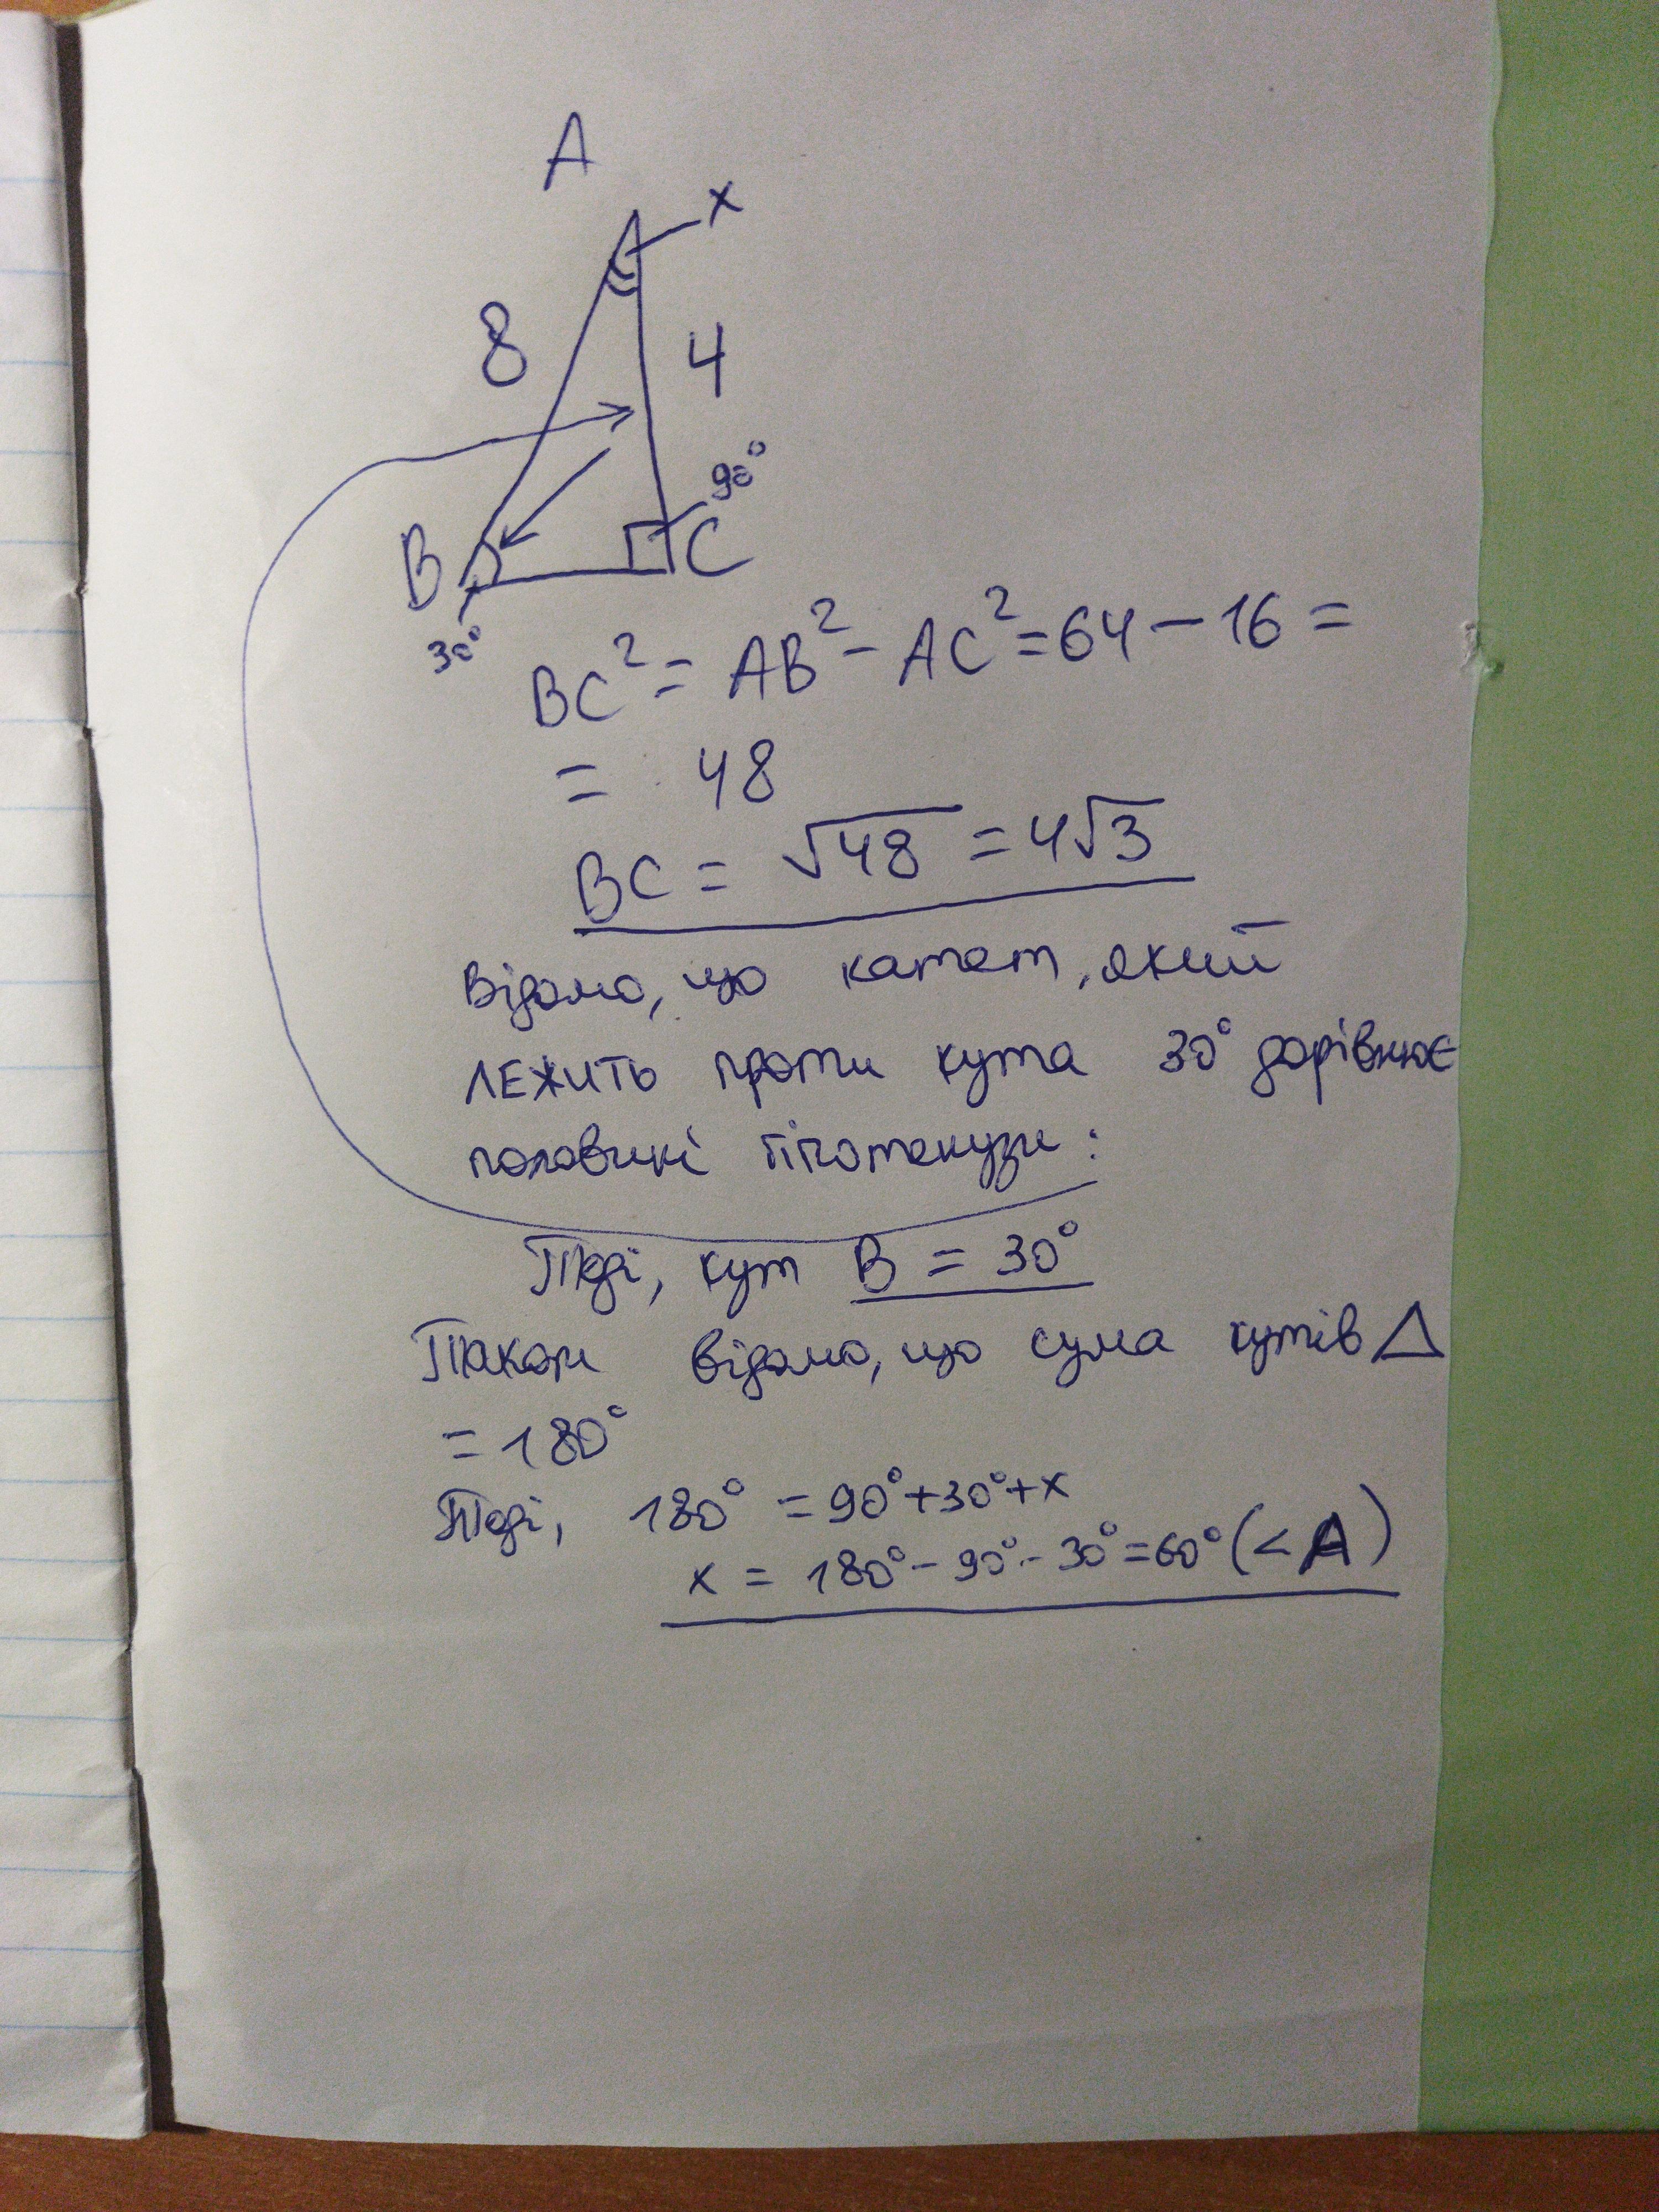 A
x
8
4
90°
B
C
30°
BC² = AB² - AC² = 64 - 16 =
= 48
BC = √48 = 4√3
Відомо, що катет, який
лежить проти кута 30° дорівнює
половині гіпотенузи:
Тоді, кут B = 30°
Також відомо, що сума кутів △
= 180°
Тоді, 180° = 90° + 30° + x
x = 180° - 90° - 30° = 60° (< A)